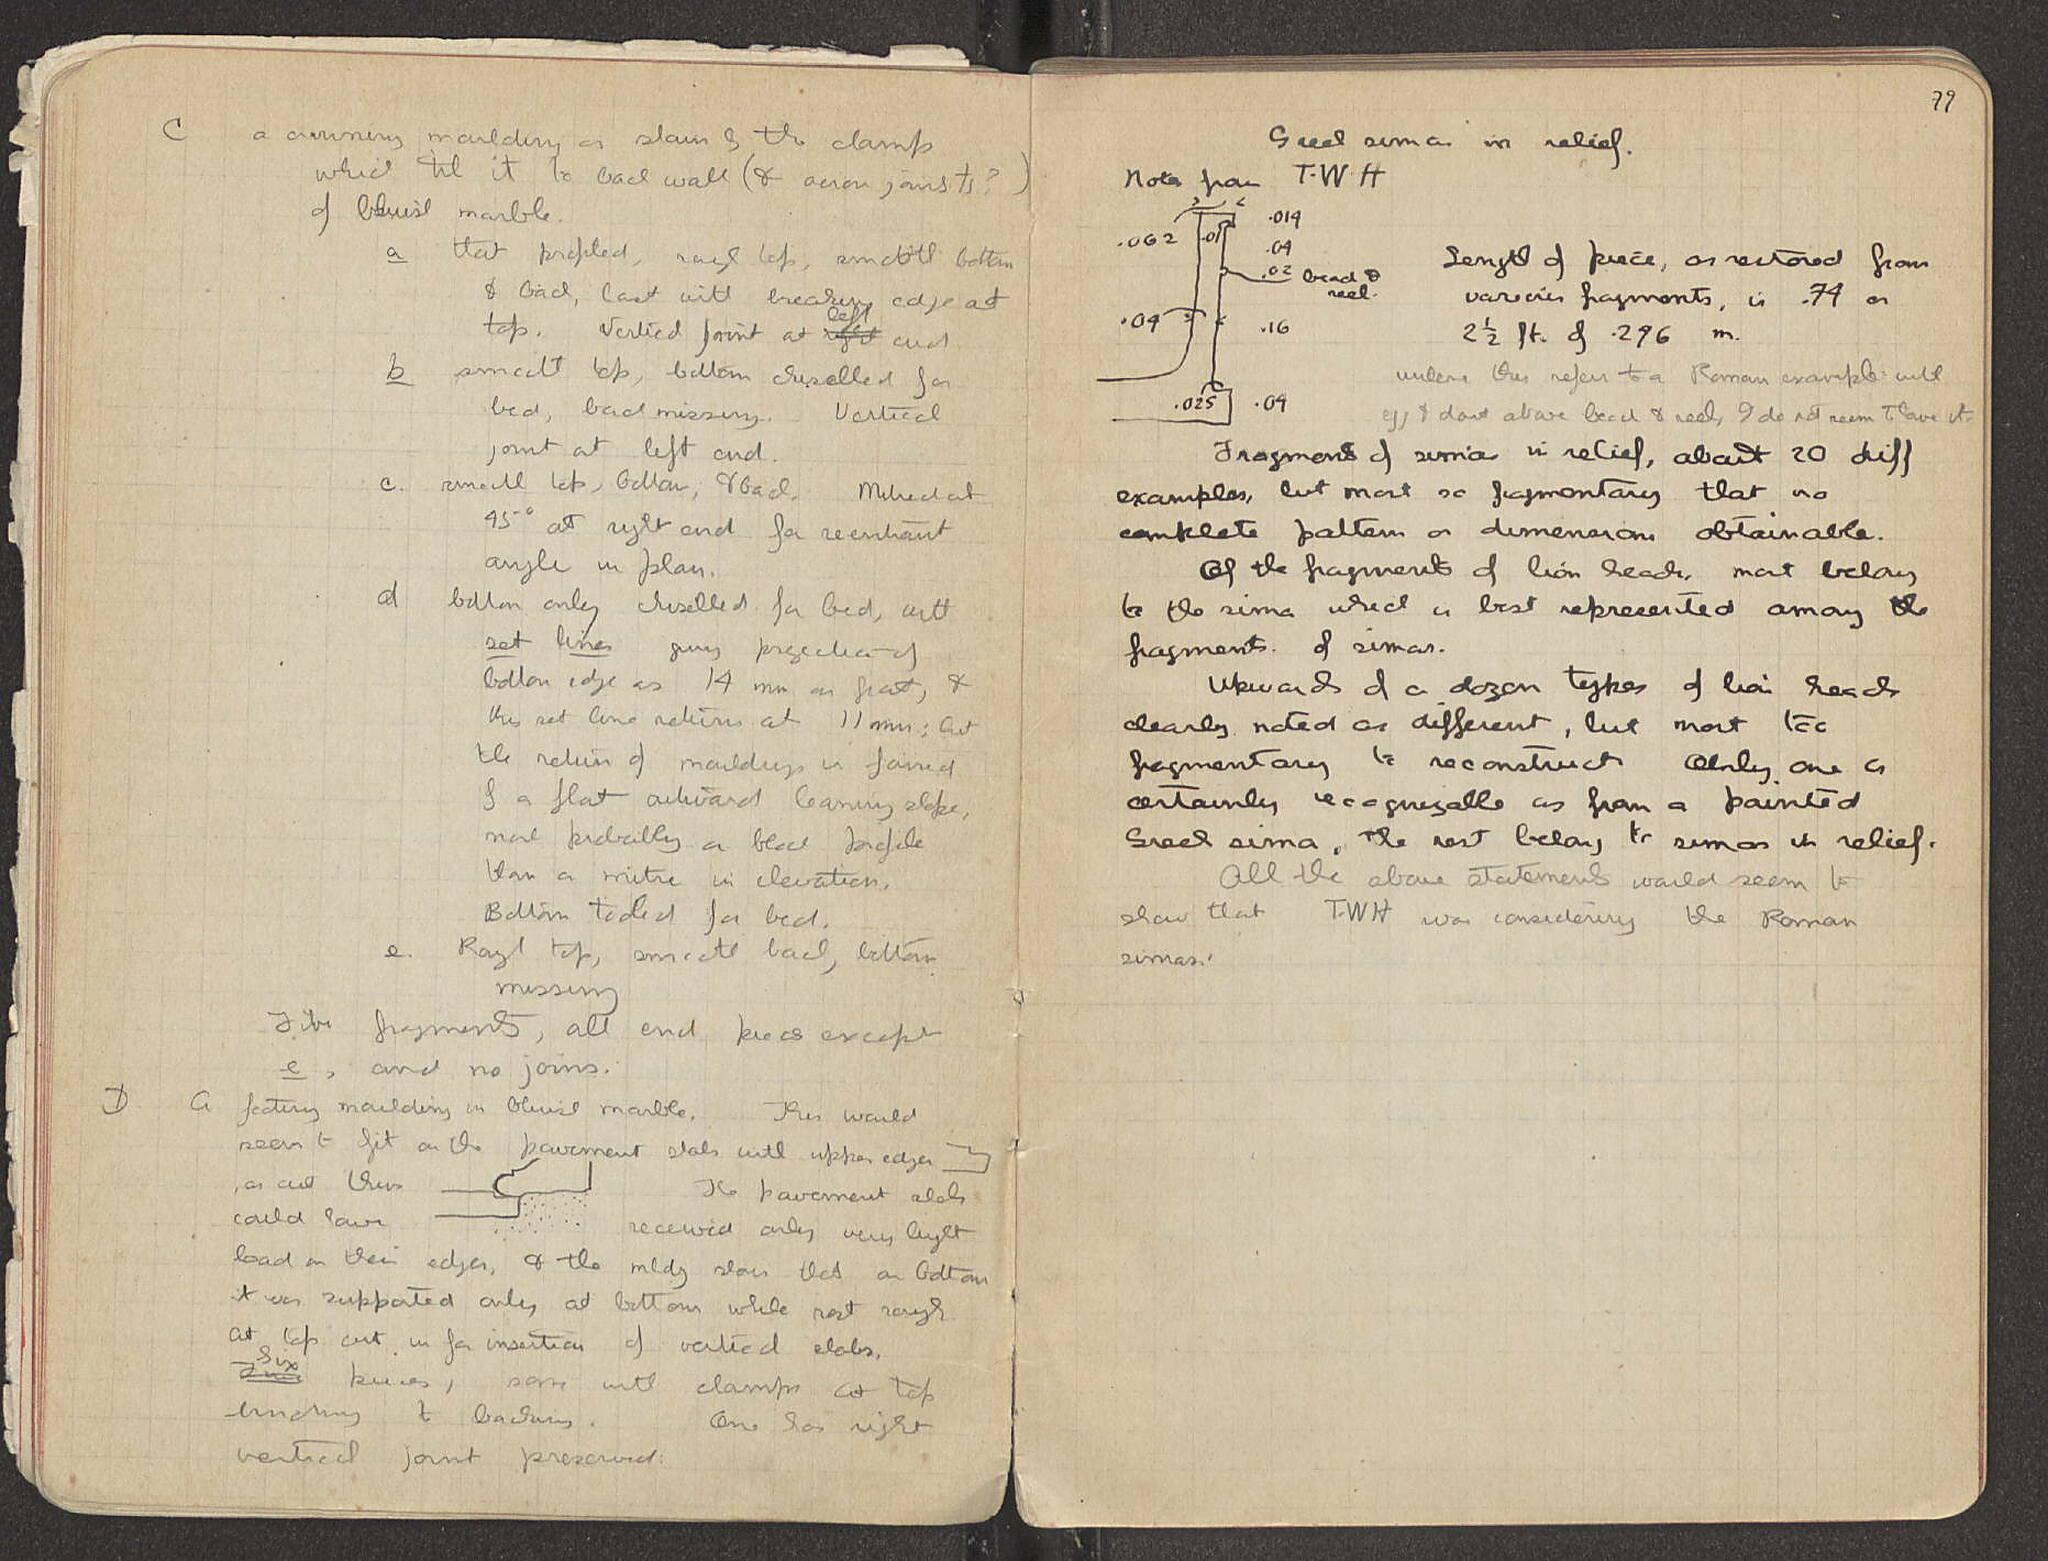 C a crowning moulding as shown by the clamp
which tied it to back wall (& across joints?)
of bluish marble.
a that profiled, rough top, smooth bottom
& back, last with breaking edge at
top. Vertical joint at right left end
b smooth top, bottom chiselled for
bed, back missing. Vertical
joint at left end.
c. smooth top, bottom, & back. Mitred at
45° at right end for reentrant
angle in plan.
d bottom only chiselled for bed, with
set lines giving projection of
bottom edge as 14 mm on front, &
this set line returns at 11 mm; but
the return of mouldings is formed
by a flat outward leaning slope,
more probably a block profile
than a mitre in elevation.
Bottom tooled for bed.
e. Rough top, smooth back, bottom
missing
Five fragments, all end pieces except
e, and no joins.
D A footing moulding in bluish marble. This would
seem to fit on the pavement slabs with upper edges
, as cut thus The pavement slabs
could have received only very light
load on their edges, & the mldg shows that on bottom
it was supported only at bottom while rest rough
at top cut in for insertion of vertical slabs.
Six pieces, some with clamps at top
binding to backing. One has right
vertical joint preserved.
79
Greek simas in relief.
Notes from T.W.H
.014
.062 .01 .04
.02 bead &
reel.
.04 .16
.025 .04
Length of piece, as restored from
various fragments, is .74 or
2½ ft. of .296 m.
unless this refers to a Roman example with
egg & dart above bead & reel, I do not seem to have it.
Fragments of simas in relief, about 20 diff
examples, but most so fragmentary that no
complete pattern or dimensions obtainable.
Of the fragments of lion heads, most belong
to the sima which is best represented among the
fragments of simas.
Upwards of a dozen types of lion heads
clearly noted as different, but most too
fragmentary to reconstruct Only one is
certainly recognizable as from a painted
Greek sima, the rest belong to simas in relief.
All the above statements would seem to
show that T.W.H was considering the Roman
simas.